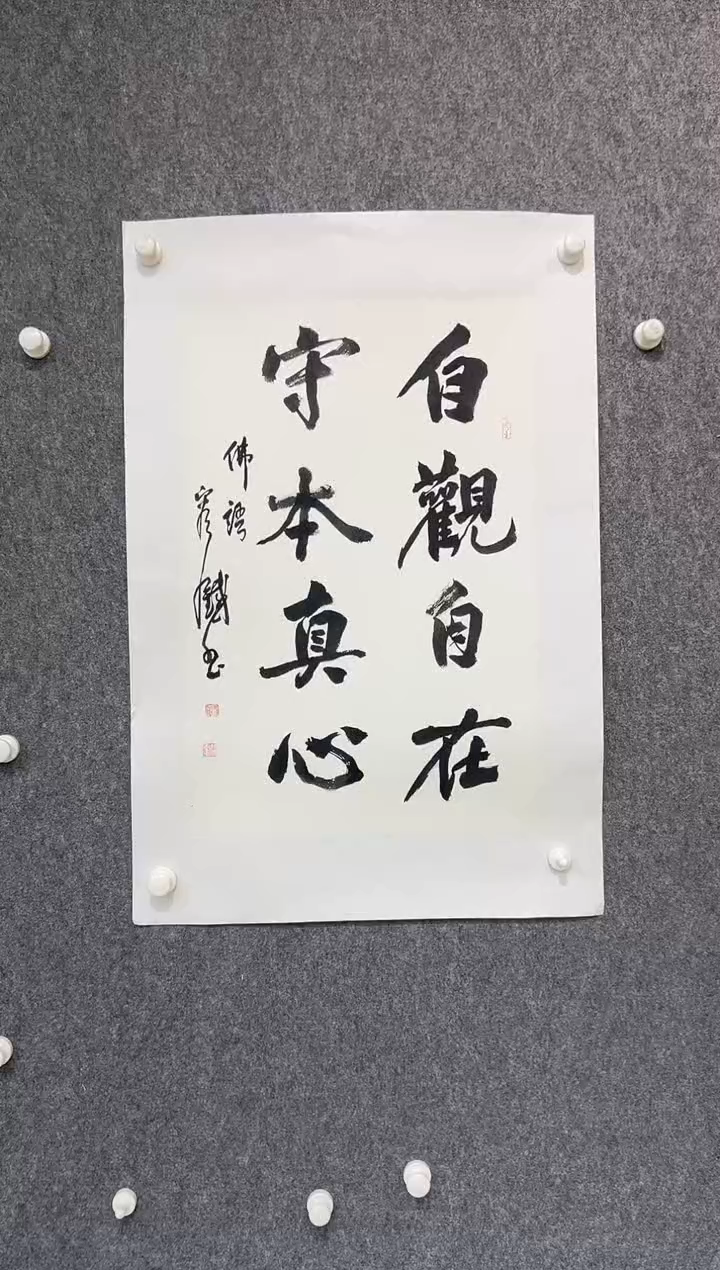 自觀自在
守本真心
佛語